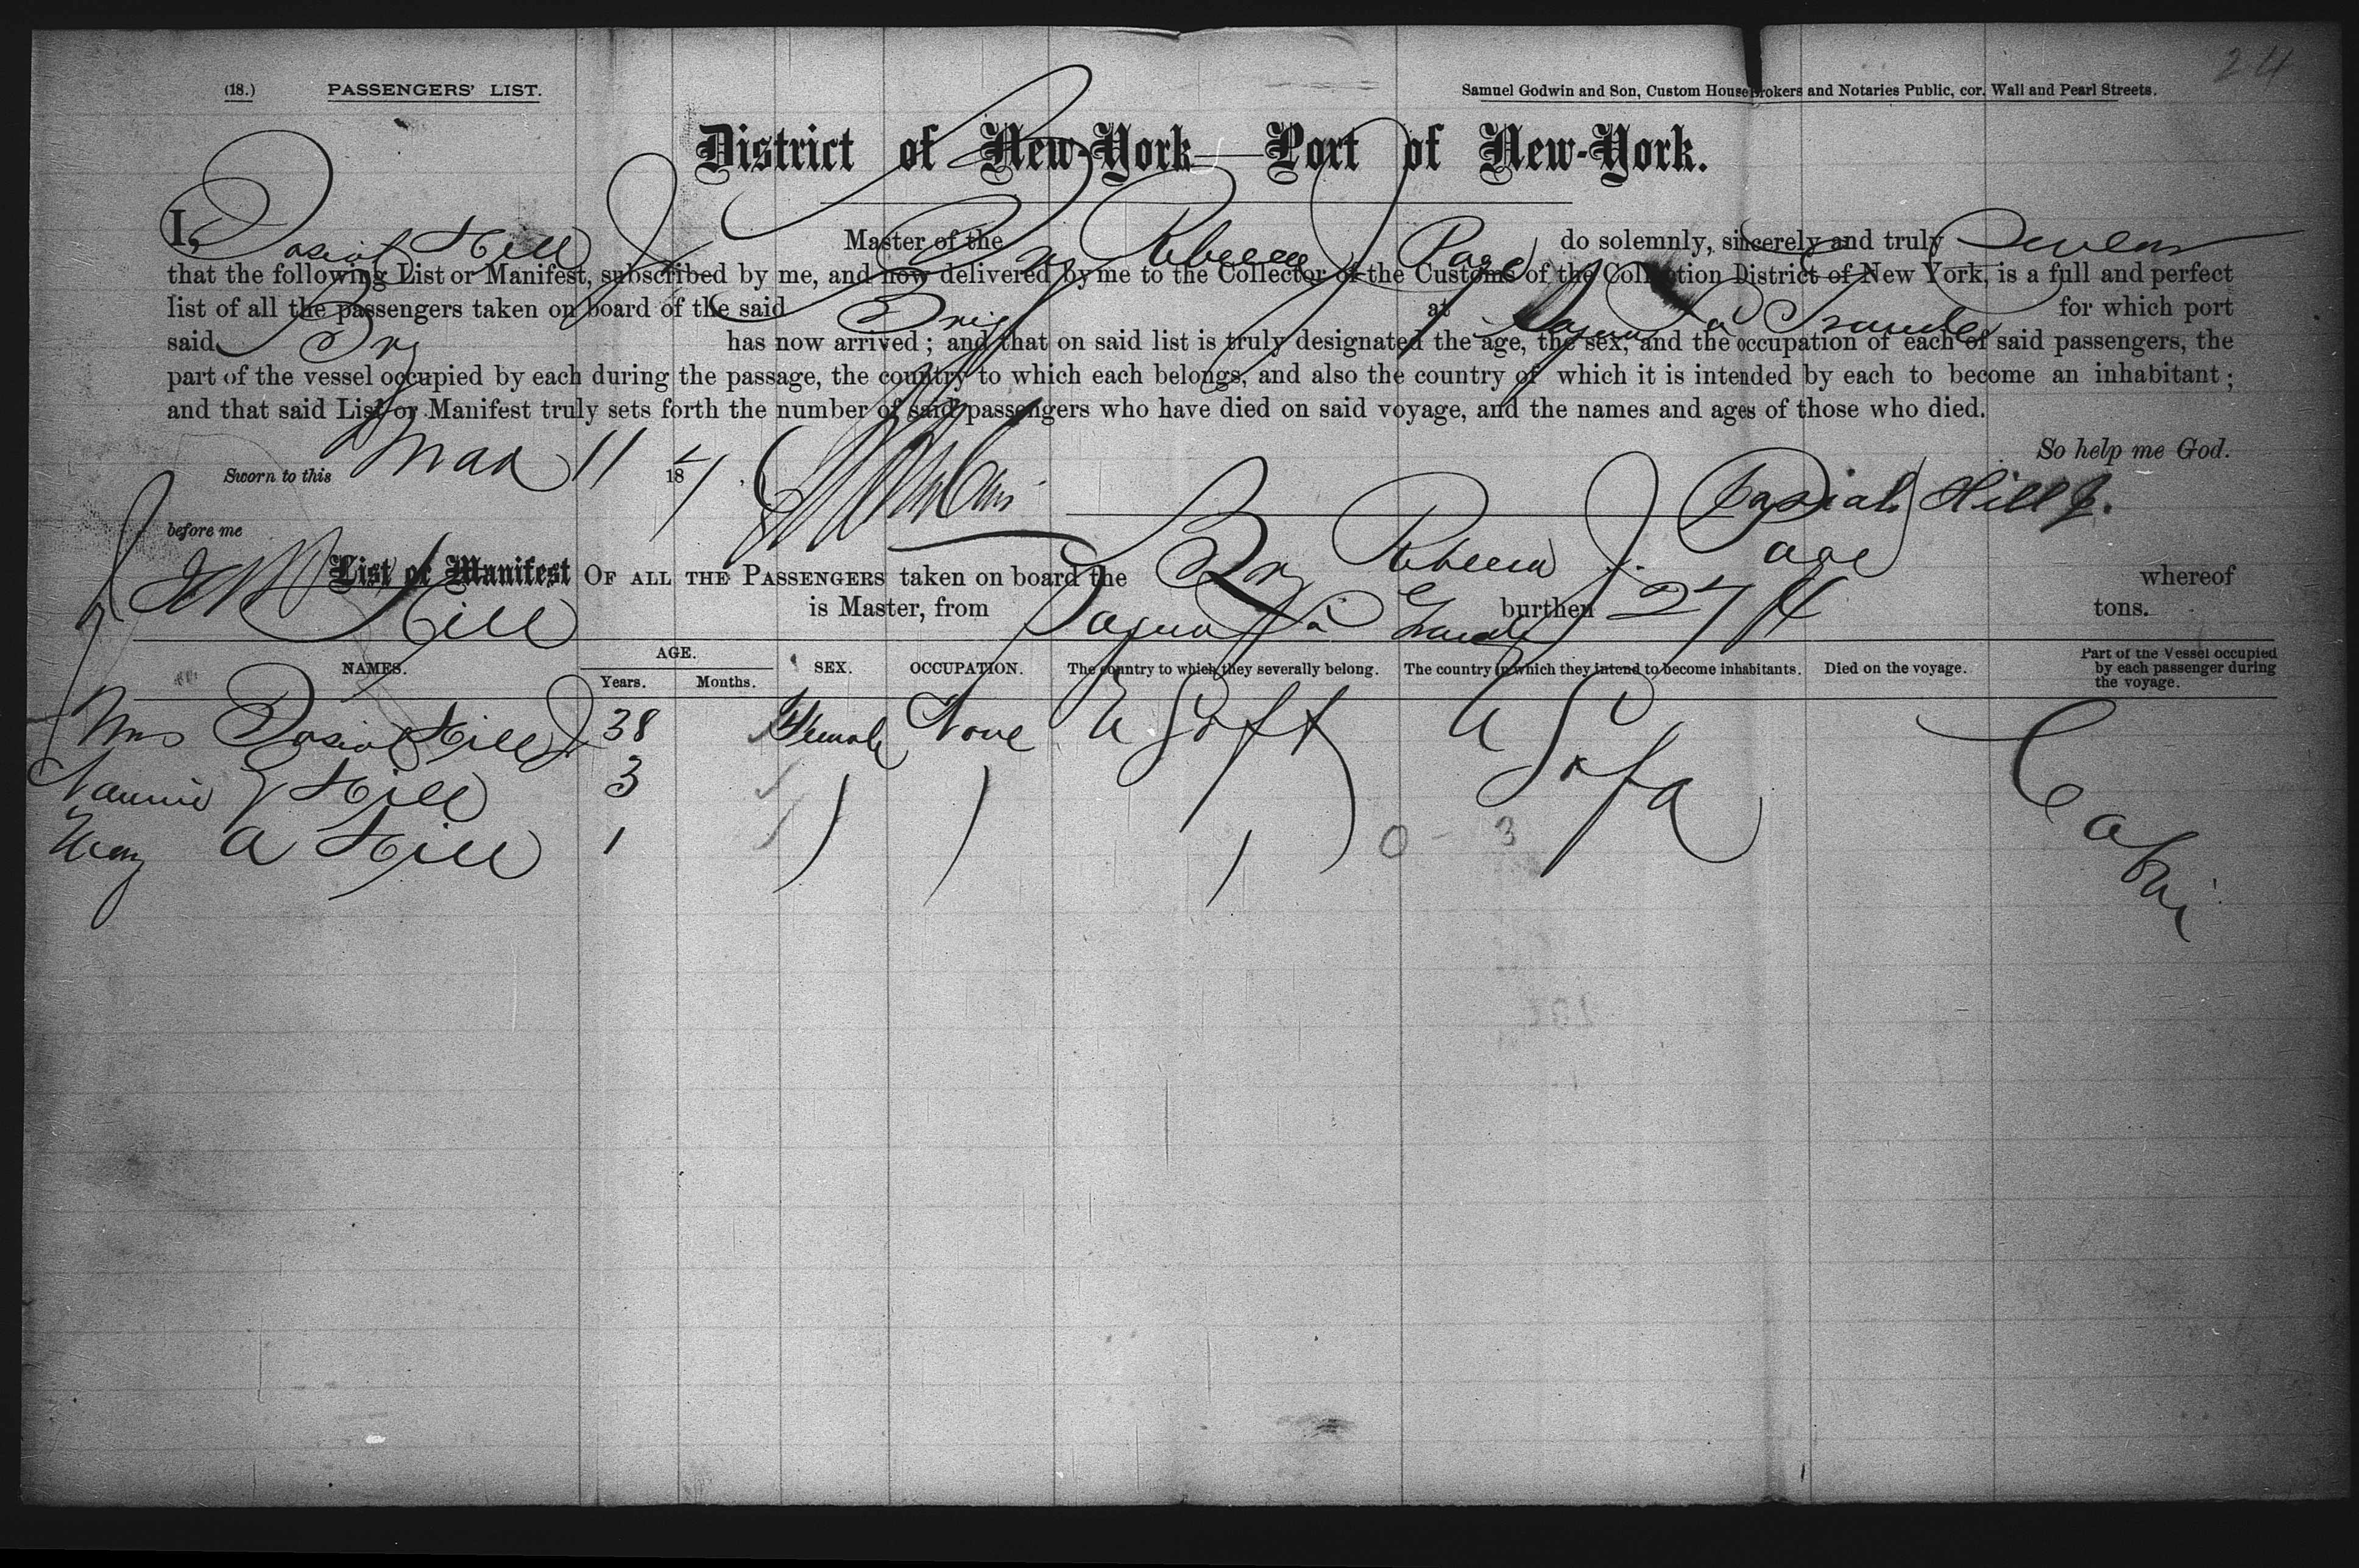 24
(18.) PASSENGERS' LIST. Samuel Godwin and Son, Custom House Brokers and Notaries Public, cor. Wall and Pearl Streets.
District of New-York—Port of New-York.
I, Hill Jr Master of the Brg Rebecca J Page do solemnly, sincerely and truly Swear
that the following List or Manifest, subscribed by me, and now delivered by me to the Collector of the Customs of the Collection District of New York, is a full and perfect
list of all the passengers taken on board of the said Brig at Sagua La Grande for which port
said Brg has now arrived; and that on said list is truly designated the age, the sex, and the occupation of each of said passengers, the
part of the vessel occupied by each during the passage, the country to which each belongs, and also the country of which it is intended by each to become an inhabitant;
and that said List or Manifest truly sets forth the number of said passengers who have died on said voyage, and the names and ages of those who died.
So help me God.
Sworn to this Mar 11 18
Hill Jr.
before me
List of Manifest OF ALL THE PASSENGERS taken on board the Brg Rebecca J. Page whereof
Hill is Master, from Sagua La Grande burthen 274 tons.
NAMES. AGE. Years. Months. SEX. OCCUPATION. The country to which they severally belong. The country in which they intend to become inhabitants. Died on the voyage. Part of the Vessel occupied by each passenger during the voyage.
Mrs Hill Jr 38 Female None U S of A U S of A Cabin
Nannie E Hill 3
A Hill 1
0 - 3